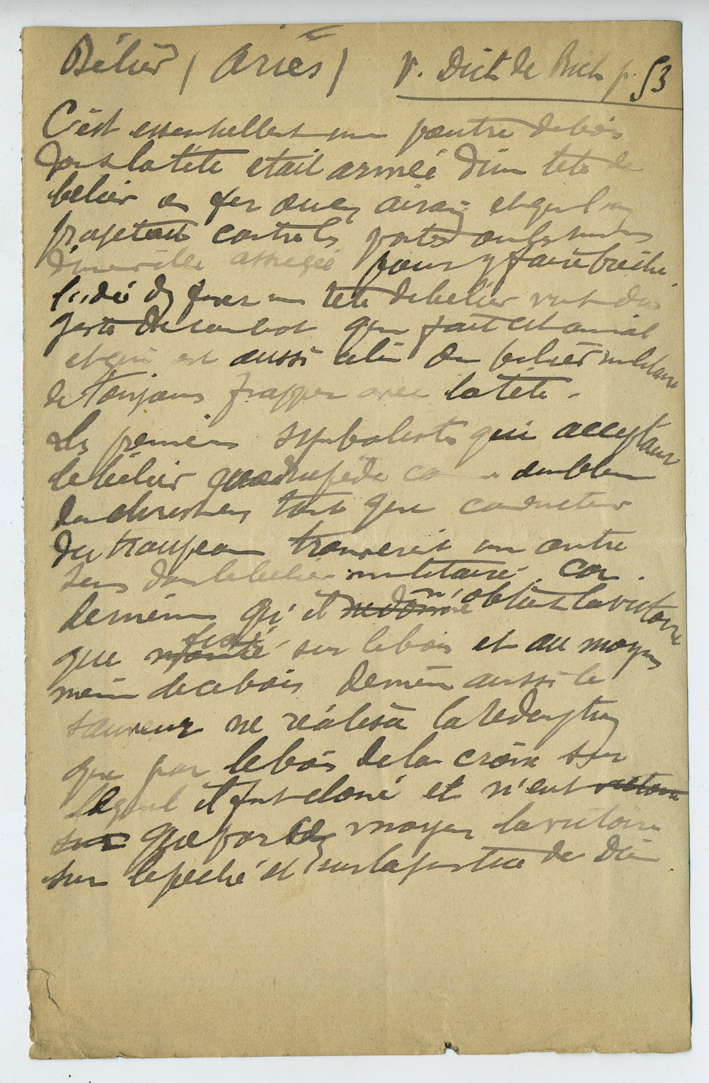 Bélier (Ariès) v. Dict de Rich p. 53
C'est essentiellemt une poutre de bois
dont la tête était armée d'une tête de
bélier en fer ou en airain et que l'on
projetait contre les portes ou les murs
d'une ville assiégée pour y faire brèche.
L'idée d'y fixer une tête de bélier vient du
geste de combat que fait cet animal
et qui est aussi celui du bélier militaire
de toujours frapper avec la tête.
Les premiers symbolistes qui acceptaient
le bélier quadrupède comme emblème
du chrétien en tant que conducteur
du troupeau trouvèrent un autre
sens dans le bélier militaire car
de même qu'il ne donne n'obtient la victoire
que monté fixé sur le bois et au moyen
même de ce bois de même aussi le
sauveur ne réalisa la rédemption
que par le bois de la croix sur
lequel il fut cloué et n'eut victoire
sur que par ce moyen la victoire
sur le péché et sur la justice de Dieu.